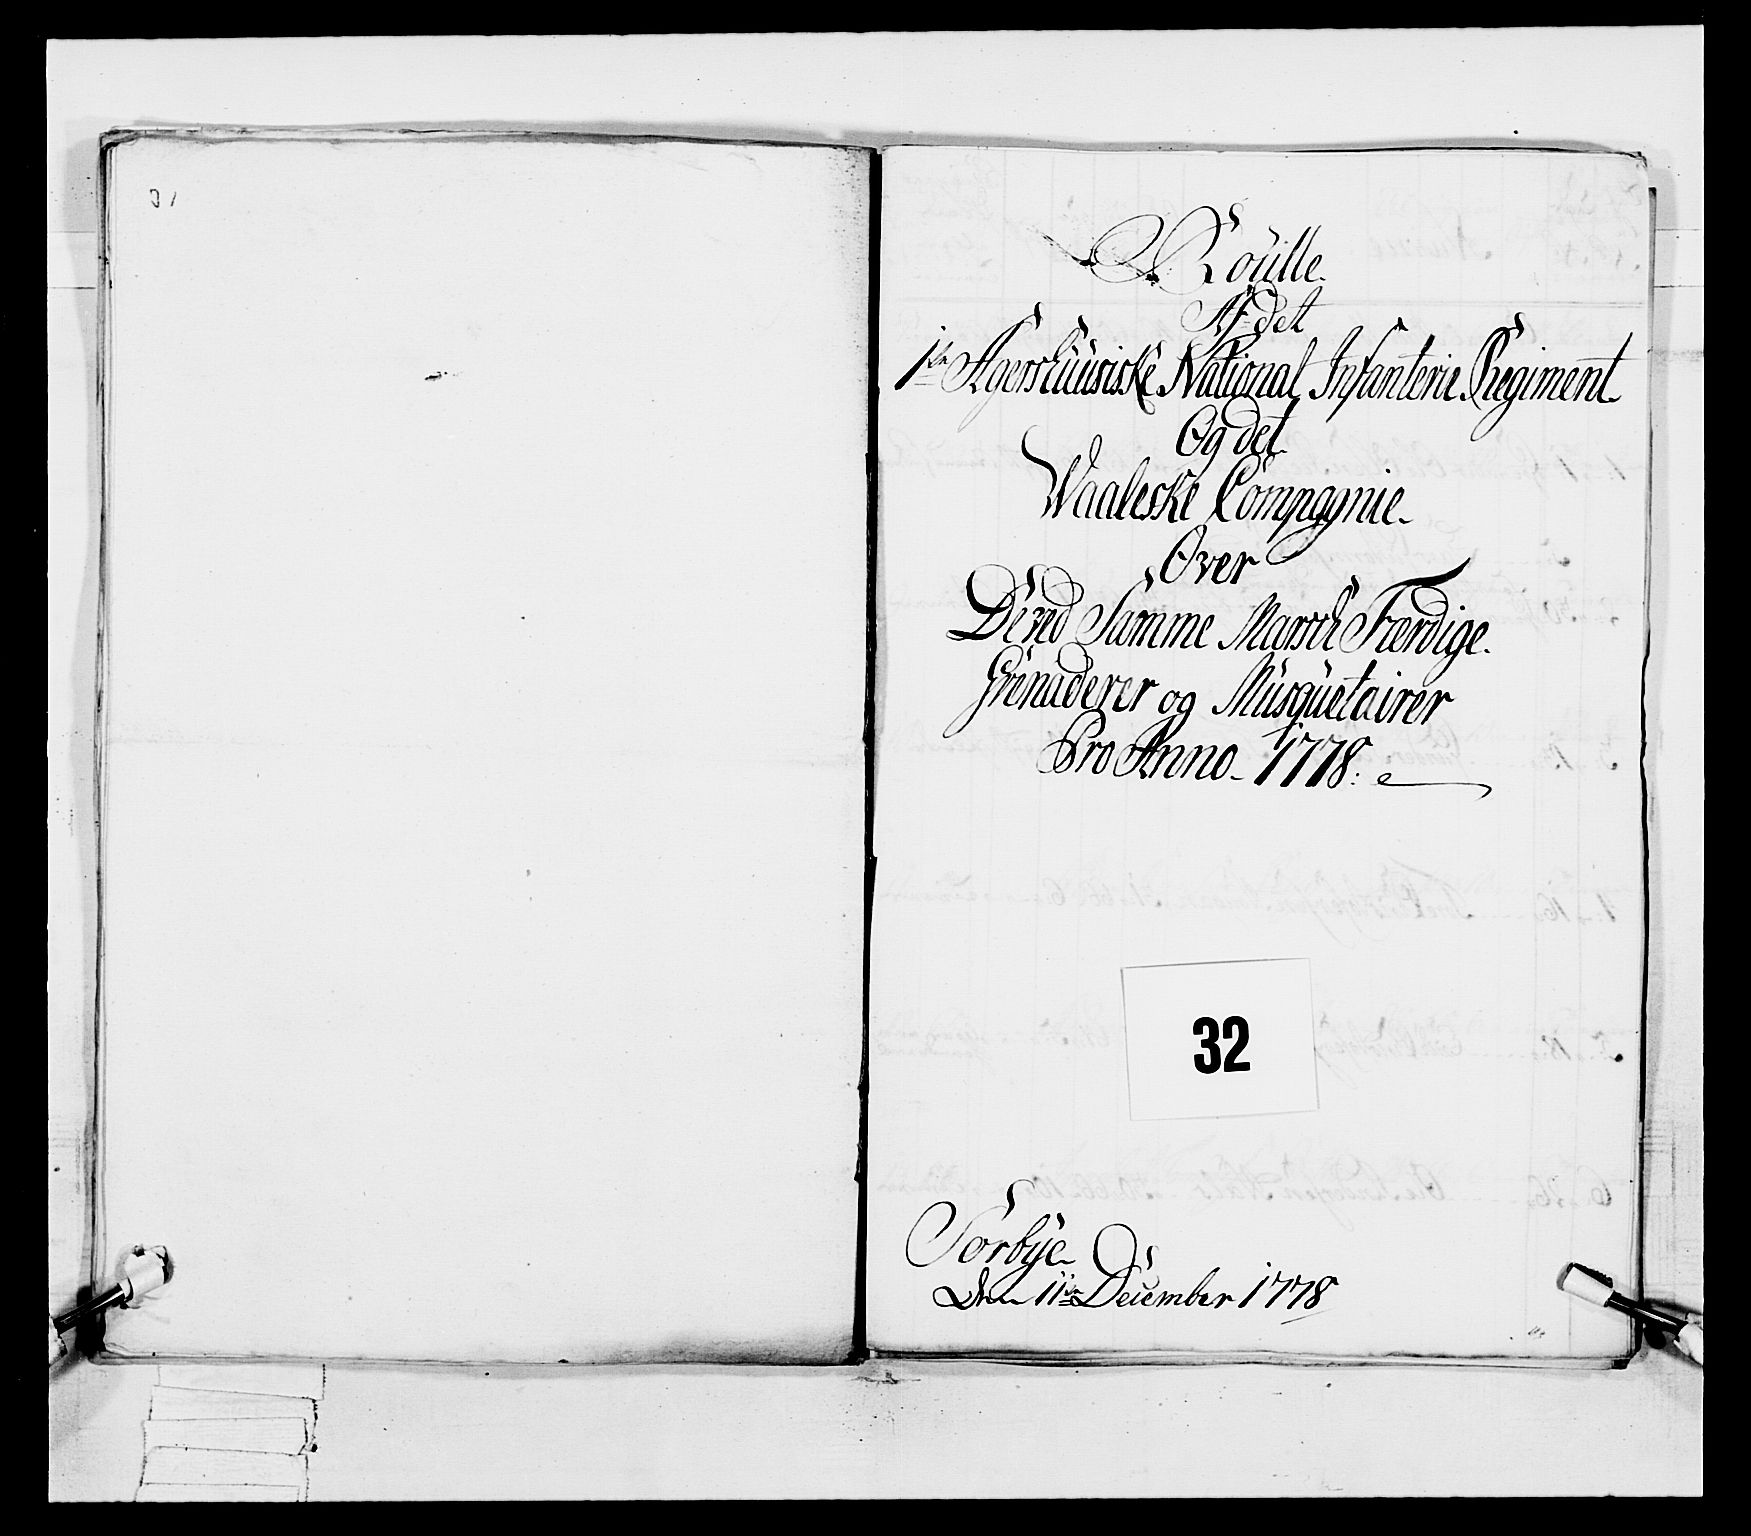 Roulle.
Af det
1ste Agershuusiske National Infanterie Regiment
Og det
Waaleske Compagnie.
Over
De ved Samme Marsch Færdige.
Grenaderer og Musquetairer
Pro Anno. 1778.
32
Sorbÿe.
Den 11te December 1778